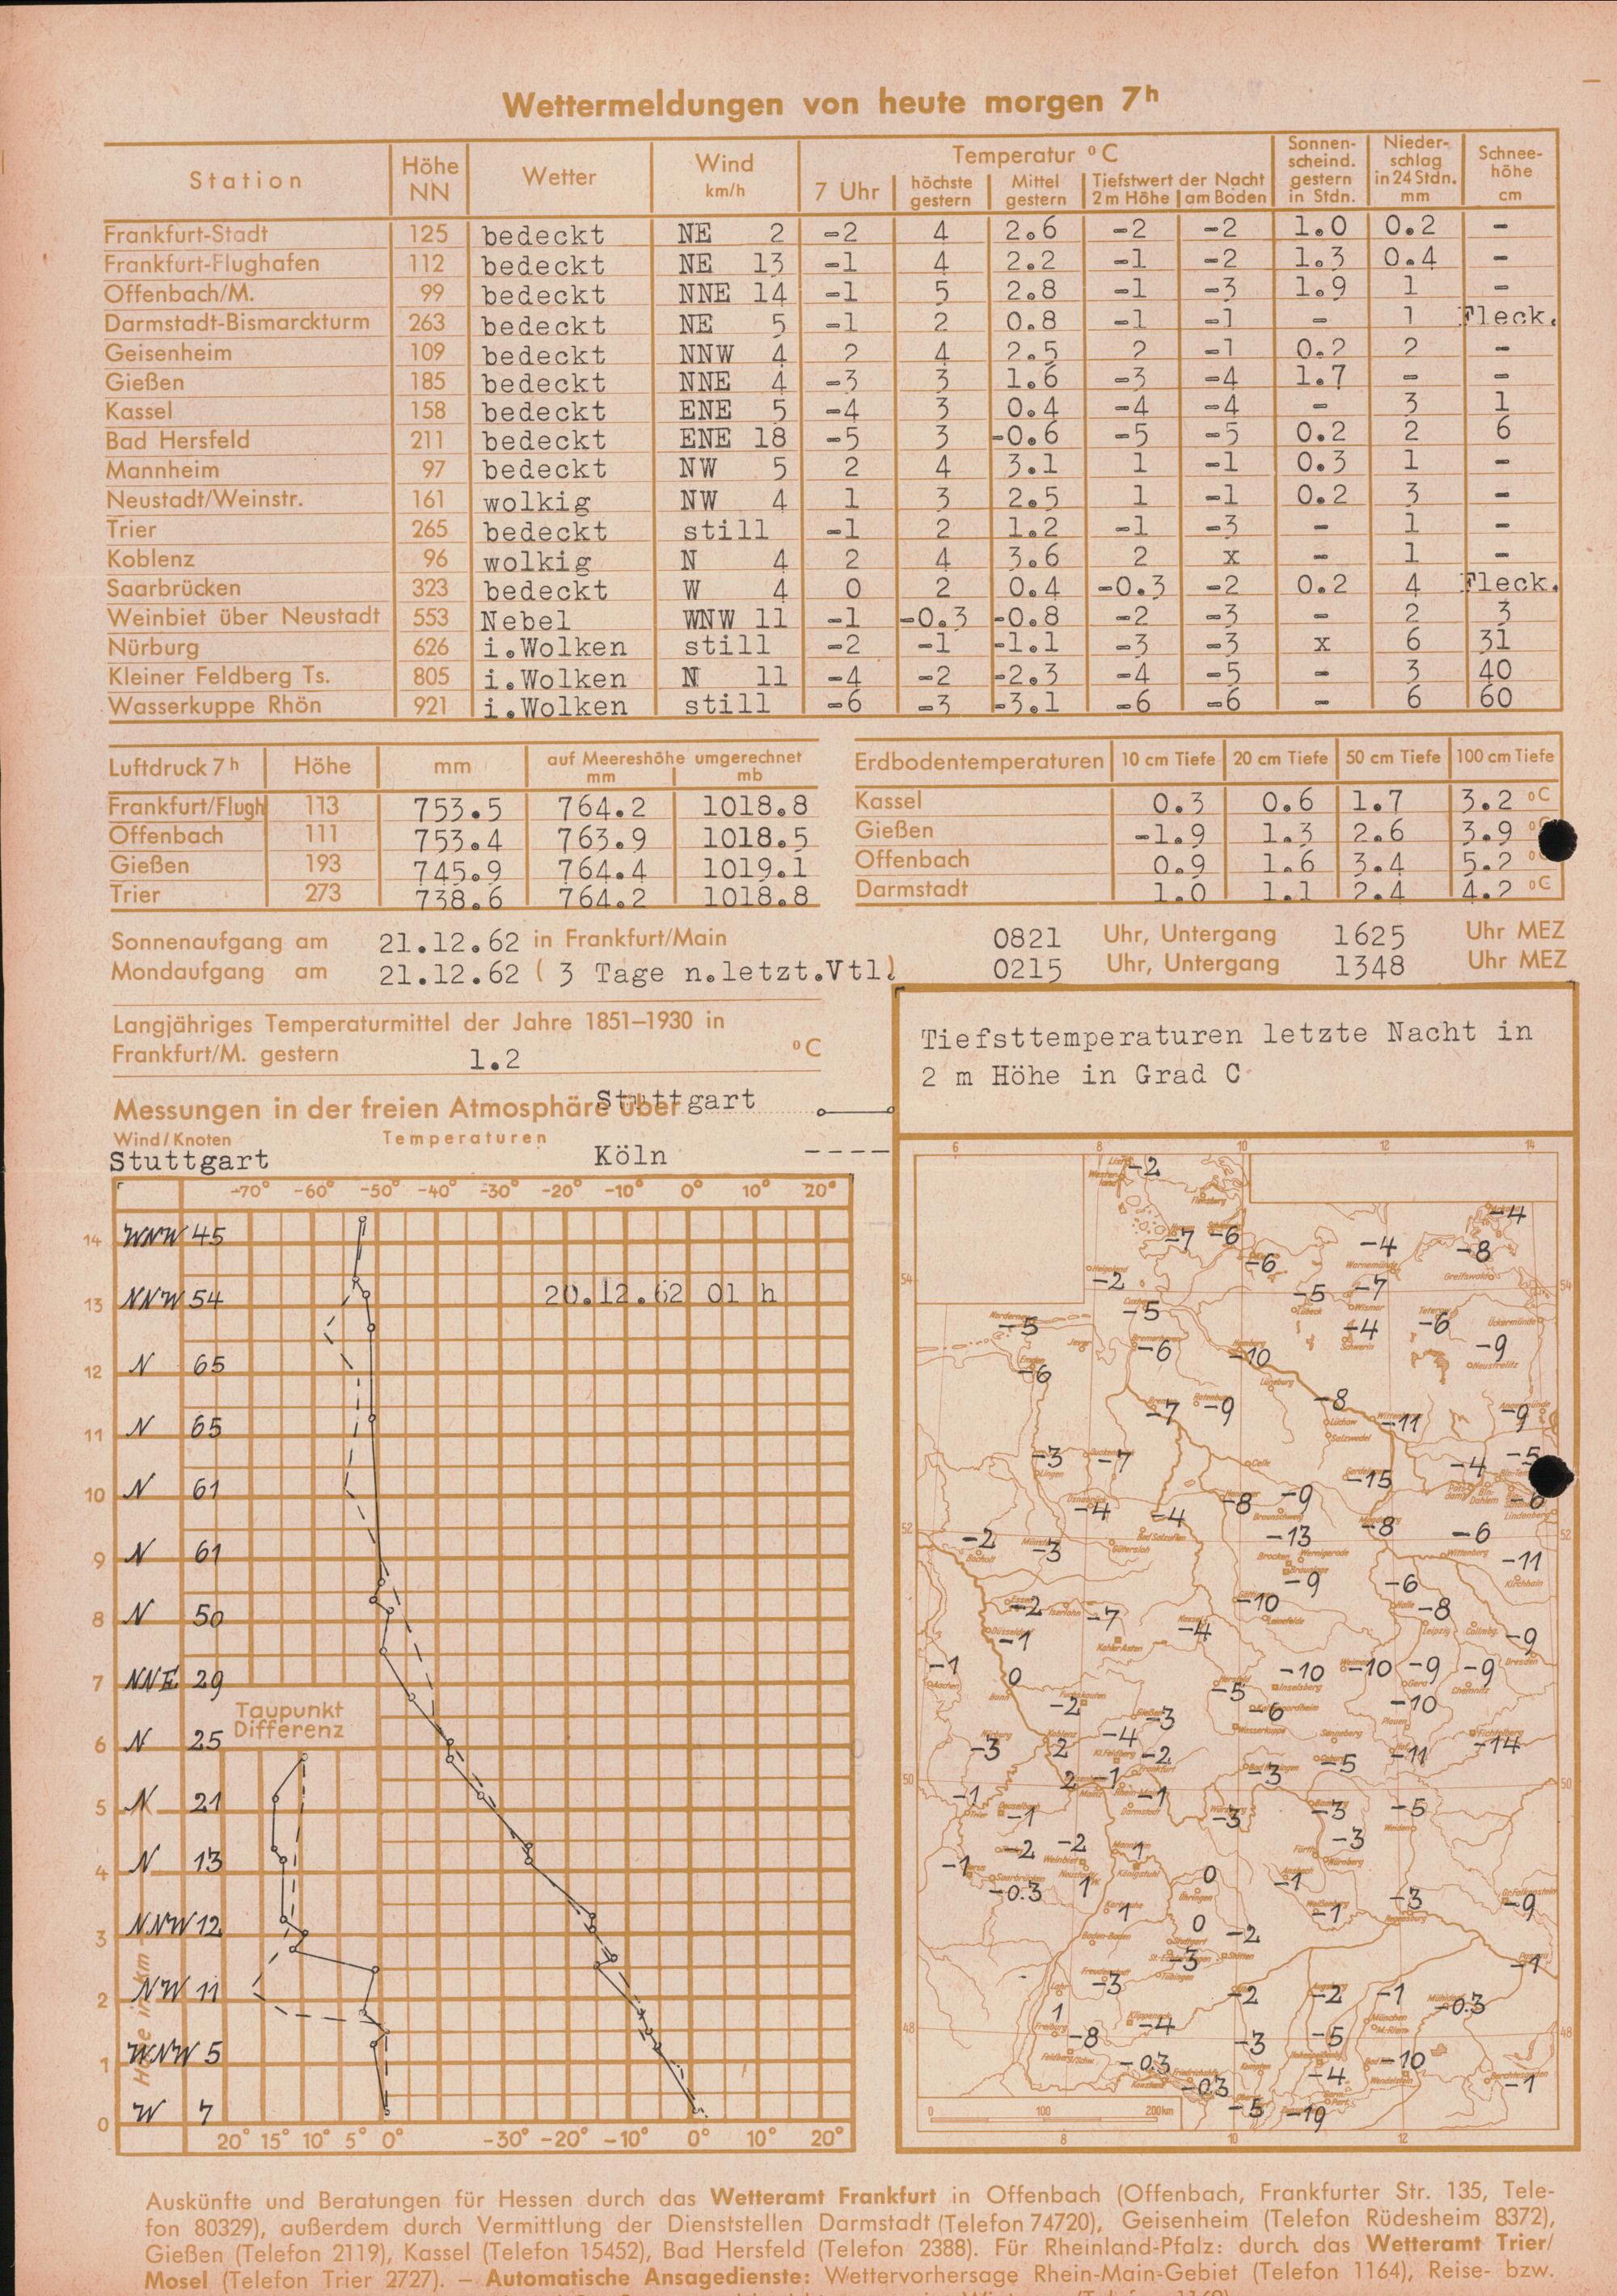 Wettermeldungen von heute morgen 7 h
Station Höhe NN Wetter Wind km/h Temperatur °C Sonnen-scheind. gestern in Stdn. Nieder-schlag in 24 Stdn. mm Schnee-höhe cm
7 Uhr höchste gestern Mittel gestern Tiefstwert der Nacht 2 m Höhe am Boden
Frankfurt-Stadt 125 bedeckt NE 2 -2 4 2.6 -2 -2 1.0 0.2 -
Frankfurt-Flughafen 112 bedeckt NE 13 -1 4 2.2 -1 -2 1.3 0.4 -
Offenbach/M. 99 bedeckt NNE 14 -1 5 2.8 -1 -3 1.9 1 -
Darmstadt-Bismarckturm 263 bedeckt NE 5 -1 2 0.8 -1 -1 - 1 Fleck.
Geisenheim 109 bedeckt NNW 4 2 4 2.5 2 -1 0.2 2 -
Gießen 185 bedeckt NNE 4 -3 3 1.6 -3 -4 1.7 - -
Kassel 158 bedeckt ENE 5 -4 3 0.4 -4 -4 - 3 1
Bad Hersfeld 211 bedeckt ENE 18 -5 3 -0.6 -5 -5 0.2 2 6
Mannheim 97 bedeckt NW 5 2 4 3.1 1 -1 0.3 1 -
Neustadt/Weinstr. 161 wolkig NW 4 1 3 2.5 1 -1 0.2 3 -
Trier 265 bedeckt still -1 2 1.2 -1 -3 - 1 -
Koblenz 96 wolkig N 4 2 4 3.6 2 x - 1 -
Saarbrücken 323 bedeckt W 4 0 2 0.4 -0.3 -2 0.2 4 Fleck.
Weinbiet über Neustadt 553 Nebel WNW 11 -1 -0.3 -0.8 -2 -3 - 2 3
Nürburg 626 i.Wolken still -2 -1 -1.1 -3 -3 x 6 31
Kleiner Feldberg Ts. 805 i.Wolken N 11 -4 -2 -2.3 -4 -5 - 3 40
Wasserkuppe Rhön 921 i.Wolken still -6 -3 -3.1 -6 -6 - 6 60
Luftdruck 7 h Höhe mm auf Meereshöhe umgerechnet mm mb
Frankfurt/Flugh 113 753.5 764.2 1018.8
Offenbach 111 753.4 763.9 1018.5
Gießen 193 745.9 764.4 1019.1
Trier 273 738.6 764.2 1018.8
Erdbodentemperaturen 10 cm Tiefe 20 cm Tiefe 50 cm Tiefe 100 cm Tiefe
Kassel 0.3 0.6 1.7 3.2 °C
Gießen -1.9 1.3 2.6 3.9
Offenbach 0.9 1.6 3.4 5.2
Darmstadt 1.0 1.1 2.4 4.2 °C
Sonnenaufgang am 21.12.62 in Frankfurt/Main 0821 Uhr, Untergang 1625 Uhr MEZ
Mondaufgang am 21.12.62 ( 3 Tage n.letzt.Vtl) 0215 Uhr, Untergang 1348 Uhr MEZ
Langjähriges Temperaturmittel der Jahre 1851–1930 in
Frankfurt/M. gestern 1.2 °C
Messungen in der freien Atmosphäre über Stuttgart
Wind/Knoten Temperaturen
Stuttgart Köln
-70° -60° -50° -40° -30° -20° -10° 0° 10° 20°
14 WNW 45
13 NNW 54 20.12.62 01 h
12 N 65
11 N 65
10 N 61
9 N 61
8 N 50
7 NNE 29
Taupunkt
Differenz
6 N 25
5 N 21
4 N 13
3 NNW 12
2 NW 11
1 WNW 5
0 W 7
Höhe in km
20° 15° 10° 5° 0° -30° -20° -10° 0° 10° 20°
Tiefsttemperaturen letzte Nacht in
2 m Höhe in Grad C
6 8 10 12 14
-2
-4
-7 -6 -4 -8
-6
-2 -5 -7
54 54
-5 -5 -4 -6
-6 -6 -10 -9
-7 -9 -8 -11 -9
-3 -7 -15 -4 -5
-4 -4 -8 -9 -8 -6
52 52
-2 -3 -13 -6 -11
-9 -6
-2 -7 -10 -8
-1 -4 -9
-1 0 -5 -10 -10 -9 -9
-2 -3 -6 -10
-3 2 -4 -2 -5 -11 -14
50 50
2 -1 -3
-1 -1 -1 -3 -3 -5
-2 -2 1 -3
-1 -0.3 1 0 -1
1 -1 -3 -9
0 -2
-3 -1
-3 -2 -2 -1 -0.3
48 48
1 -4 -5
-8 -0.3 -3 -10
-4 -1
-0.3 -5 -19
0 100 200km
8 10 12
Auskünfte und Beratungen für Hessen durch das Wetteramt Frankfurt in Offenbach (Offenbach, Frankfurter Str. 135, Tele-
fon 80329), außerdem durch Vermittlung der Dienststellen Darmstadt (Telefon 74720), Geisenheim (Telefon Rüdesheim 8372),
Gießen (Telefon 2119), Kassel (Telefon 15452), Bad Hersfeld (Telefon 2388). Für Rheinland-Pfalz: durch das Wetteramt Trier/
Mosel (Telefon Trier 2727). — Automatische Ansagedienste: Wettervorhersage Rhein-Main-Gebiet (Telefon 1164), Reise- bzw.